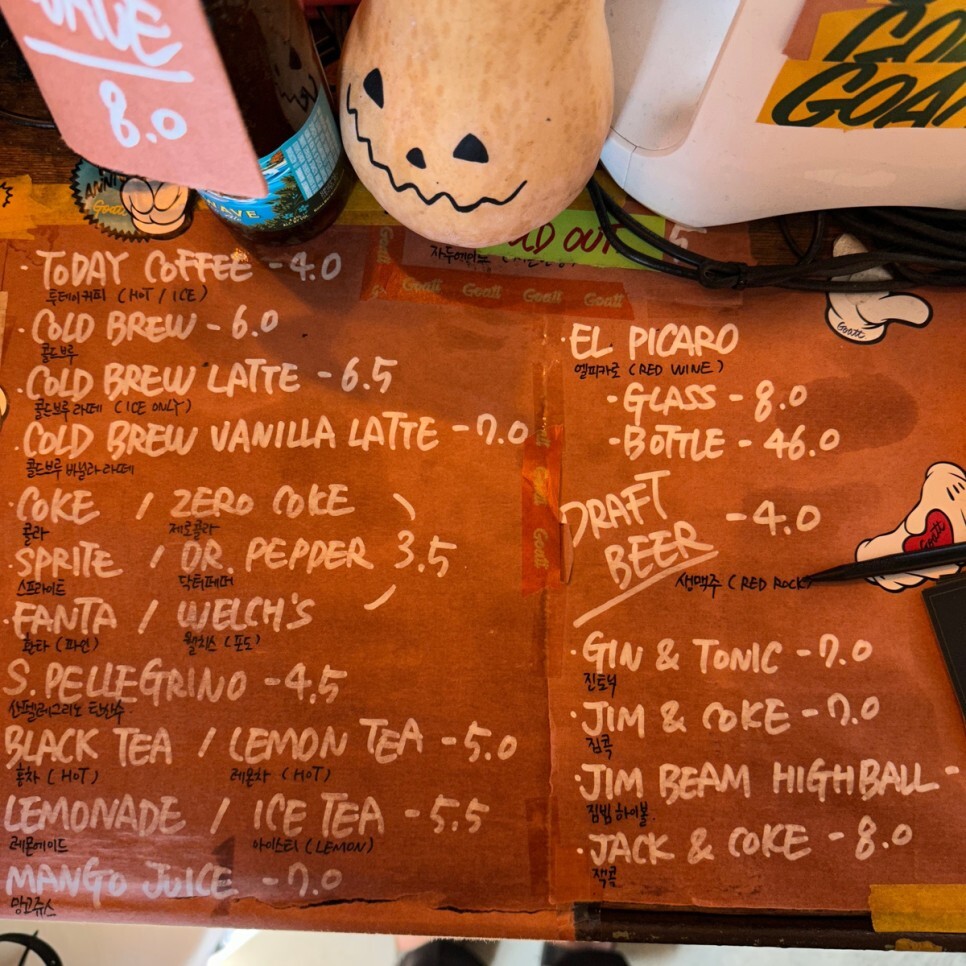 8.0
ANNI
Goatt
WAVE
GOAT
LD OUT
Goatt Goatt Goatt Goatt
· TODAY COFFEE - 4.0
투데이커피 (HOT / ICE)
· COLD BREW - 6.0
콜드브루
· COLD BREW LATTE - 6.5
콜드브루 라떼 (ICE ONLY)
· COLD BREW VANILLA LATTE - 7.0
콜드브루 바닐라 라떼
· COKE / ZERO COKE
콜라 제로콜라
· SPRITE / DR. PEPPER 3.5
스프라이트 닥터페퍼
· FANTA / WELCH'S
환타 (파인)웰치스 (포도)
S. PELLEGRINO - 4.5
산펠레그리노 탄산수
BLACK TEA / LEMON TEA - 5.0
홍차 (HOT) 레몬차 (HOT)
LEMONADE / ICE TEA - 5.5
레몬에이드 아이스티 (LEMON)
MANGO JUICE - 7.0
망고쥬스
· EL PICARO
엘피카로 (RED WINE)
- GLASS - 8.0
- BOTTLE - 46.0
DRAFT
BEER - 4.0
생맥주 (RED ROCK)
· GIN & TONIC - 7.0
진토닉
· JIM & COKE - 7.0
짐콕
· JIM BEAM HIGHBALL -
짐빔 하이볼
· JACK & COKE - 8.0
잭콕
Goatt
Goatt
Goatt